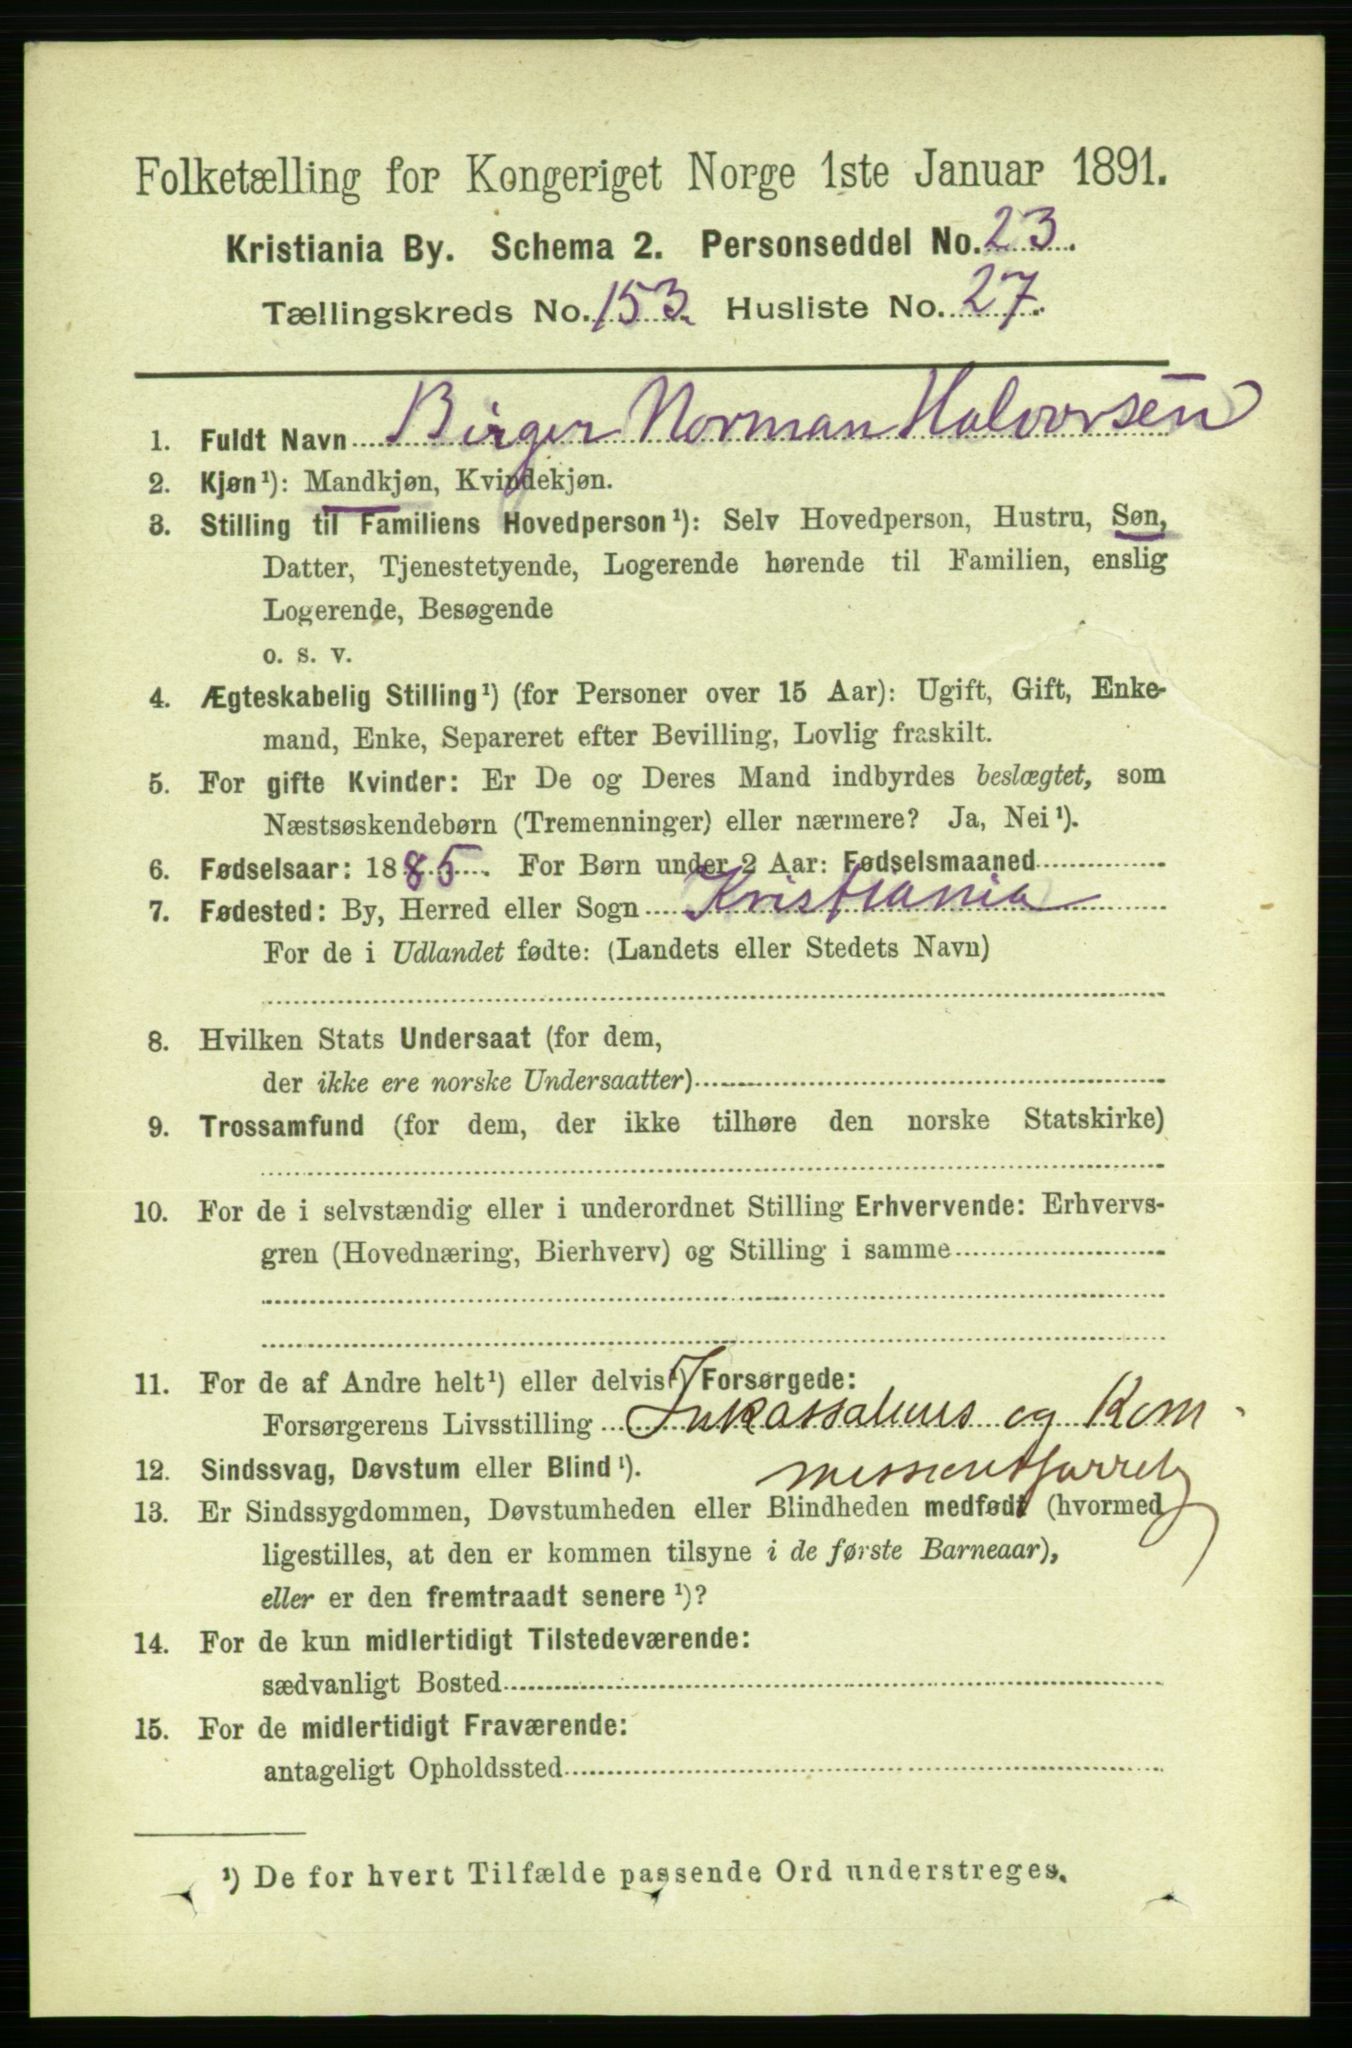 Folketælling for Kongeriget Norge 1ste Januar 1891.
Kristiania By. Schema 2. Personseddel No. 23.
Tællingskreds No. 153. Husliste No. 27.
1. Fuldt Navn Birger Norman Halvorsen
2. Kjøn¹): Mandkjøn, Kvindekjøn.
3. Stilling til Familiens Hovedperson¹): Selv Hovedperson, Hustru, Søn,
Datter, Tjenestetyende, Logerende hørende til Familien, enslig
Logerende, Besøgende
o. s. v.
4. Ægteskabelig Stilling¹) (for Personer over 15 Aar): Ugift, Gift, Enke-
mand, Enke, Separeret efter Bevilling, Lovlig fraskilt.
5. For gifte Kvinder: Er De og Deres Mand indbyrdes beslægtet, som
Næstsøskendebørn (Tremenninger) eller nærmere? Ja, Nei¹).
6. Fødselsaar: 1885. For Børn under 2 Aar: Fødselsmaaned
7. Fødested: By, Herred eller Sogn Kristiania
For de i Udlandet fødte: (Landets eller Stedets Navn)
8. Hvilken Stats Undersaat (for dem,
der ikke ere norske Undersaatter)
9. Trossamfund (for dem, der ikke tilhøre den norske Statskirke)
10. For de i selvstændig eller i underordnet Stilling Erhvervende: Erhvervs-
gren (Hovednæring, Bierhverv) og Stilling i samme
11. For de af Andre helt¹) eller delvis¹) Forsørgede:
Forsørgerens Livsstilling Inkassations og Kom-
12. Sindssvag, Døvstum eller Blind¹). missionsforretn
13. Er Sindssygdommen, Døvstumheden eller Blindheden medfødt (hvormed
ligestilles, at den er kommen tilsyne i de første Barneaar),
eller er den fremtraadt senere¹)?
14. For de kun midlertidigt Tilstedeværende:
sædvanligt Bosted
15. For de midlertidigt Fraværende:
antageligt Opholdssted
¹) De for hvert Tilfælde passende Ord understreges.